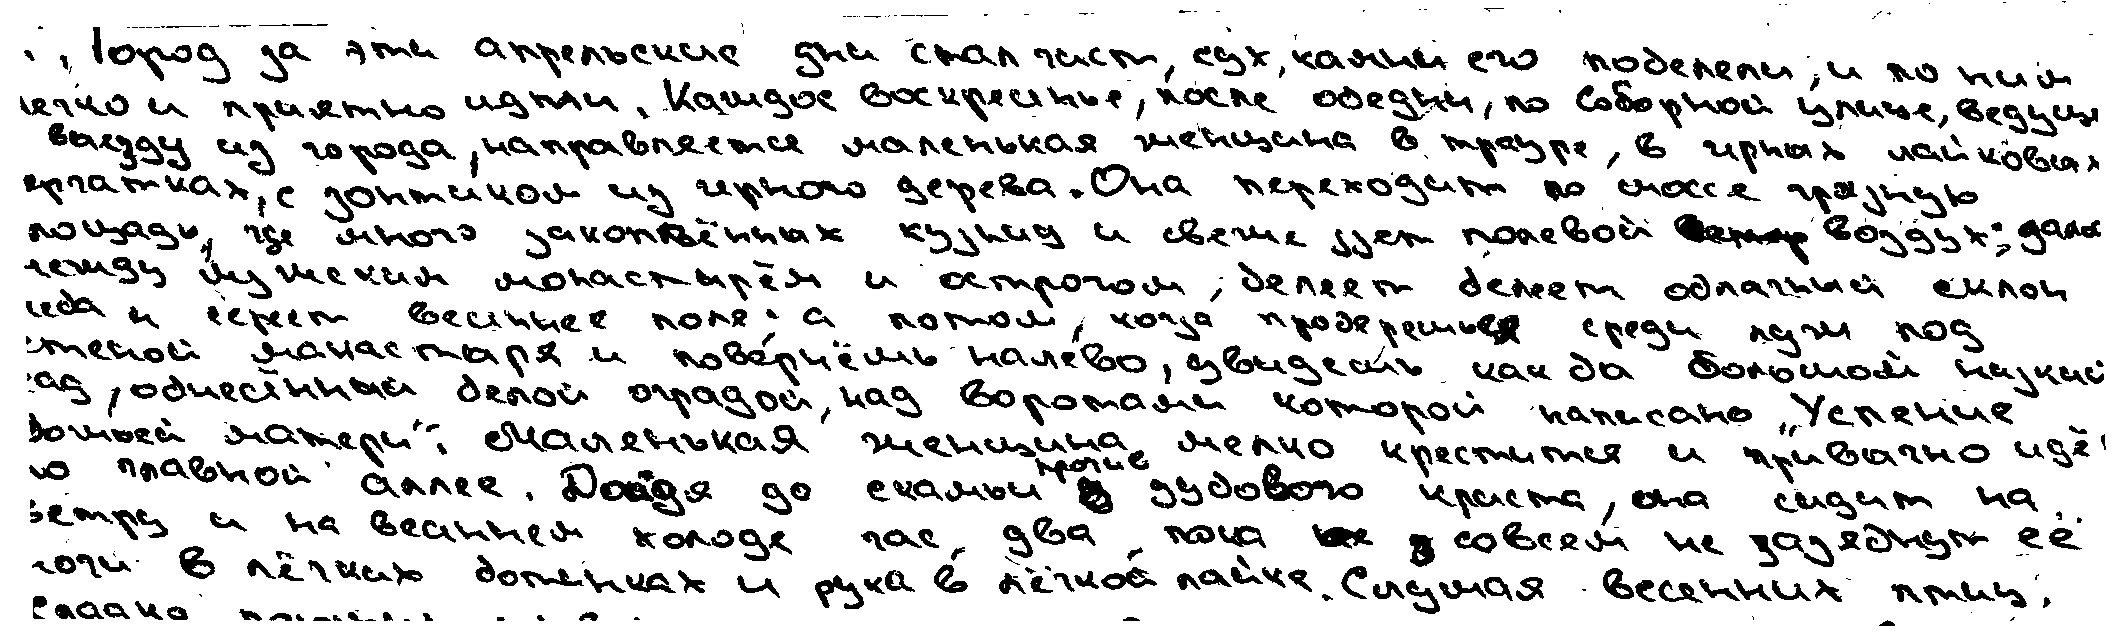 Город за эти апрельские дни стал чист, сух, камни его побелели, и по ним
легко и приятно идти. Каждое воскресенье, после обедни, по Соборной улице, ведущ
выезду из города, направляется маленькая женщина в трауре, в чрных лайковых
ерчатках, с зонтиком из чрного дерева. Она переходит по шоссе грязную
площадь, где много закопчённых кузниц и свеже дует полевой воздух; дале
между мужским монастырём и острогом, белеет белеет облачный склон
неба и сереет весеннее поле; а потом, когда проберешься среди луж под
стеной манастыря и повернёшь налево, увидешь как бы большой низкий
сад, обнесённый белой оградой, над воротами которой написано „Успение
божьей матери“. Маленькая женщина мелко крестится и привычно идё
по главной аллее. Дойдя до скамьи против дубового криста, она сидит на
ветру и на весеннем холоде час, два, пока совсем не зазябнут её
ноги в лёгких ботинках и рука в лёгкой лайке. Слушая весенних птиц,
Сладко